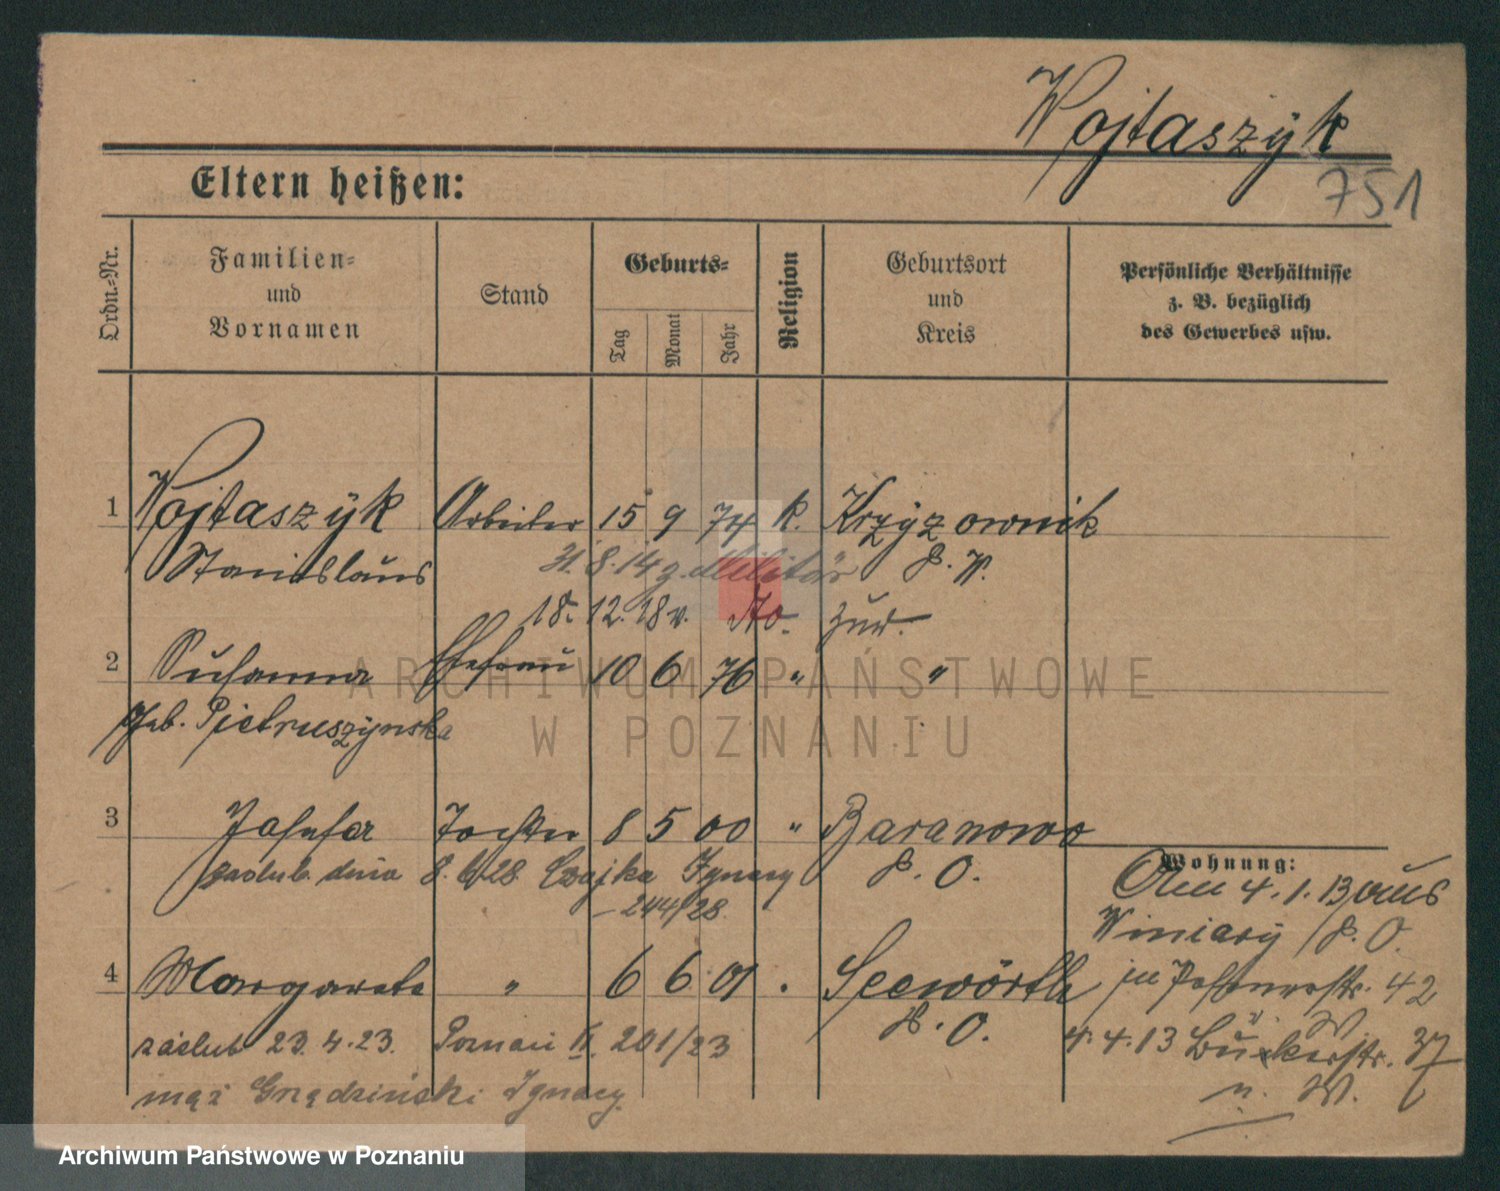 Wojtaszÿk
751
Eltern heißen:
Ordn.-Nr.
Familien- und Vornamen
Stand
Geburts-
Tag
Monat
Jahr
Religion
Geburtsort und Kreis
Persönliche Verhältnisse z. B. bezüglich des Gewerbes usw.
1 Wojtaszÿk Arbeiter 15 9 74 k. Krzÿzownik
Stanislaus P. W.
31. 8. 14 z. Militär
18. 12. 18 v. zur.
2 Susanna Ehefrau 10 6 76 " "
geb. Pietruszynska
3 Josefa Tochter 8 5 00 " Baranowo
zaślub. dnia 8. 6. 28. Czajka Ignacy P. O.
– 244/28.
4 Margarete " 6 6 01 " Seewörth
P. O.
zaślub 23. 4. 23. Poznań II. 201/23
mąż Grządzielski Ignacy
Wohnung:
Am 4. 1. 13 aus
Winiary P. O.
42
4. 4. 13 Bukerstr. 37
n. W.
ARCHIWUM PAŃSTWOWE
W POZNANIU
Archiwum Państwowe w Poznaniu